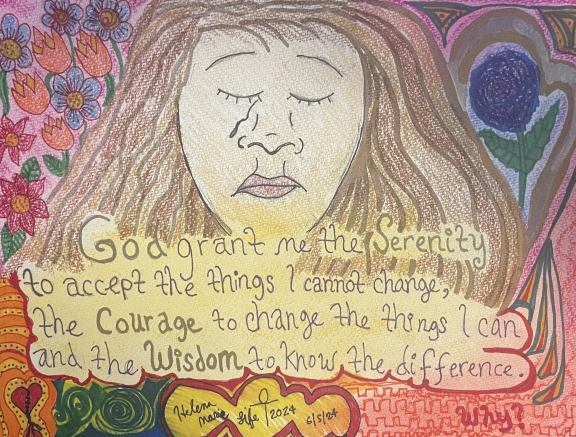 God grant me the Serenity
to accept the things I cannot change,
the Courage to change the things I can
and the Wisdom to know the difference.
Helena
Marie Life 2024 6/5/24
Why?